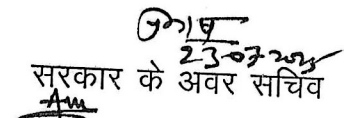 23-07-2025
सरकार के अवर सचिव